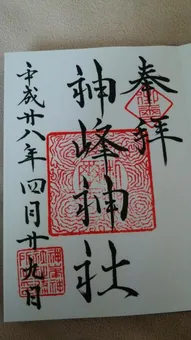 奉拝
神峰神社
平成廿八年四月廿九日